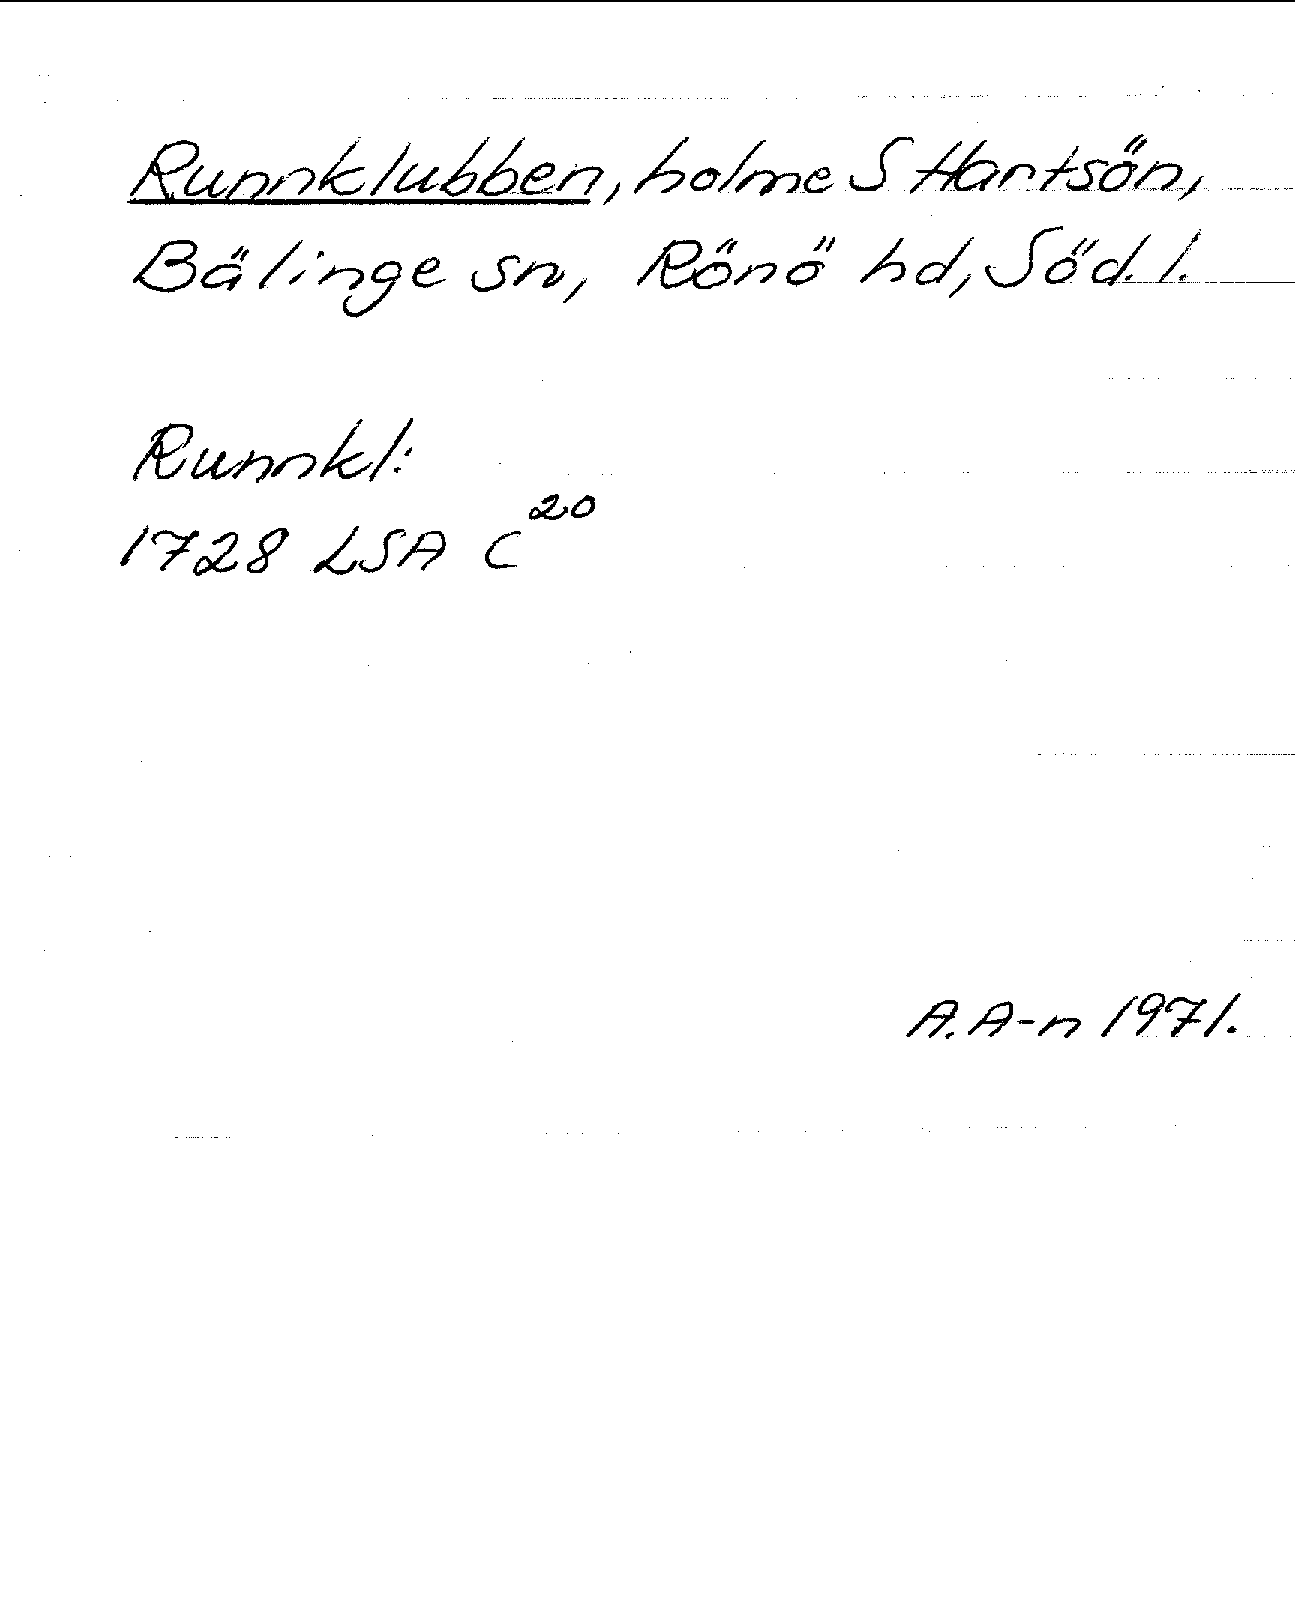 Runnklubben, holme S Hartsön,
Bälinge sn, Rönö hd, Söd. l.
Runnkl:
1728 LSA C²⁰
A. A-n 1971.